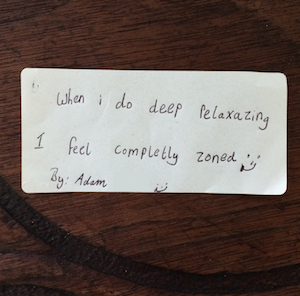 When i do deep relaxazing
I feel completly zoned
By: Adam